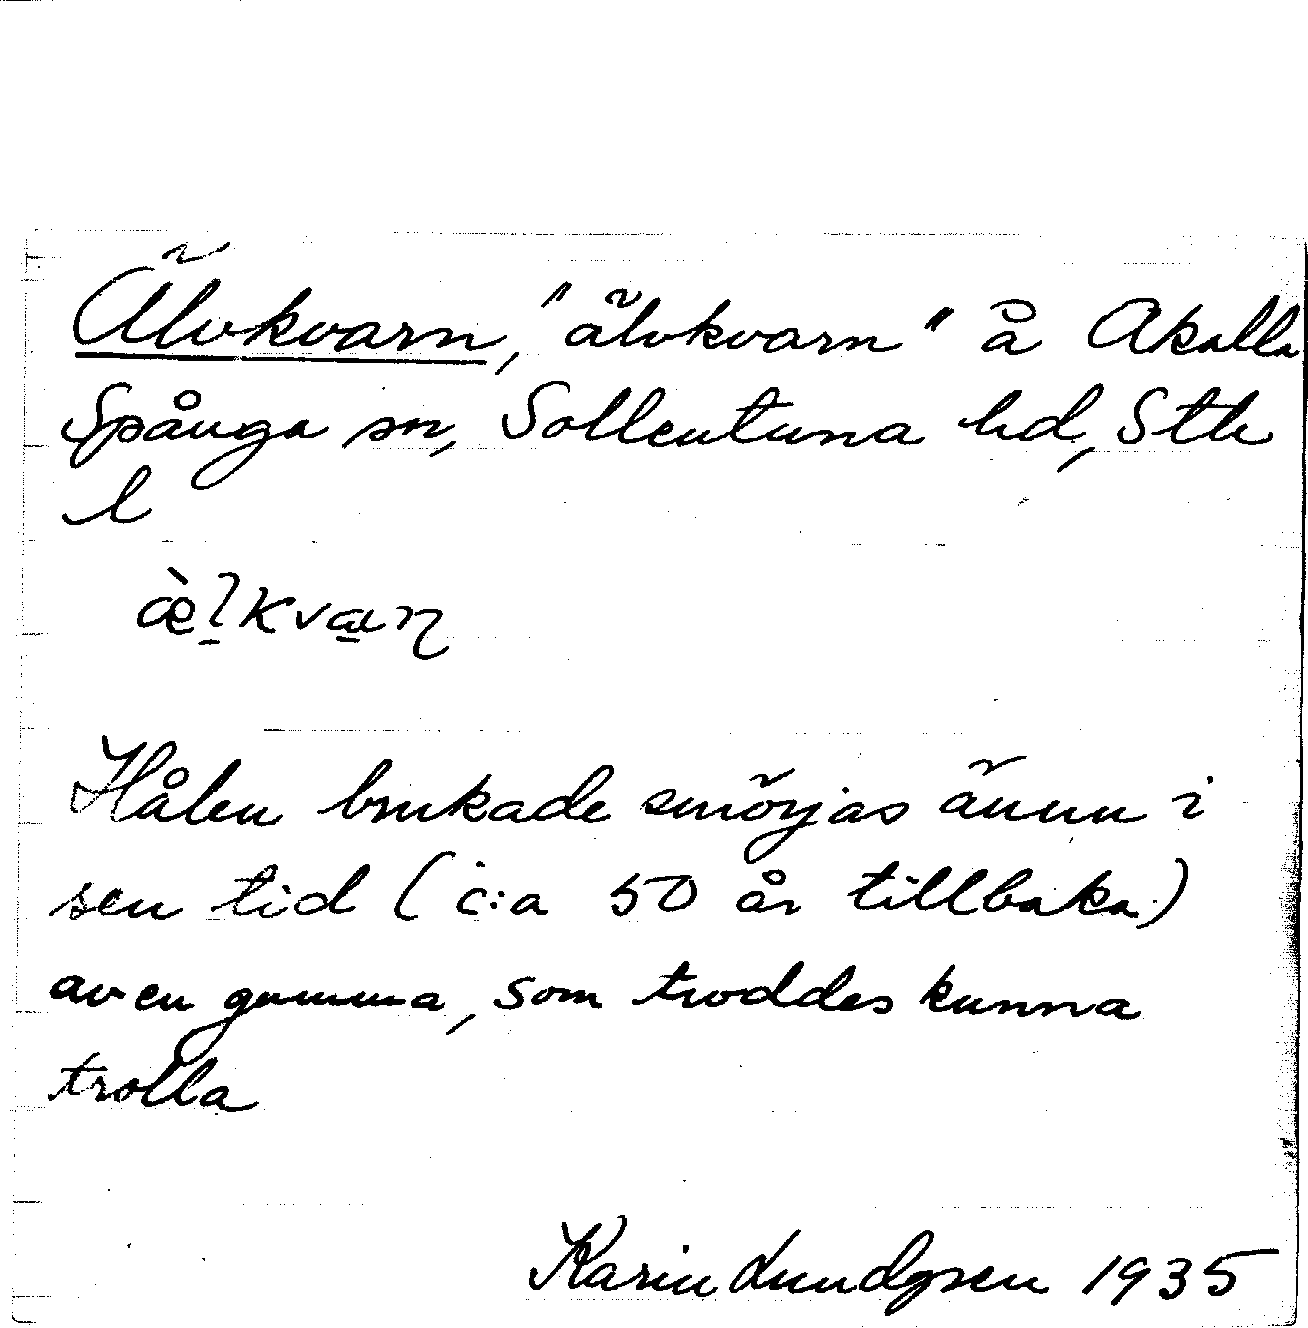 Älvkvarn, "älvkvarn" å Akalla
Spånga sn, Sollentuna hd, Sth
l
æ̀l̠kva̠ɳ
Hålen brukade smörjas ännu i
sen tid (c:a 50 år tillbaka)
av en gumma, som troddes kunna
trolla
Karin Lundgren 1935